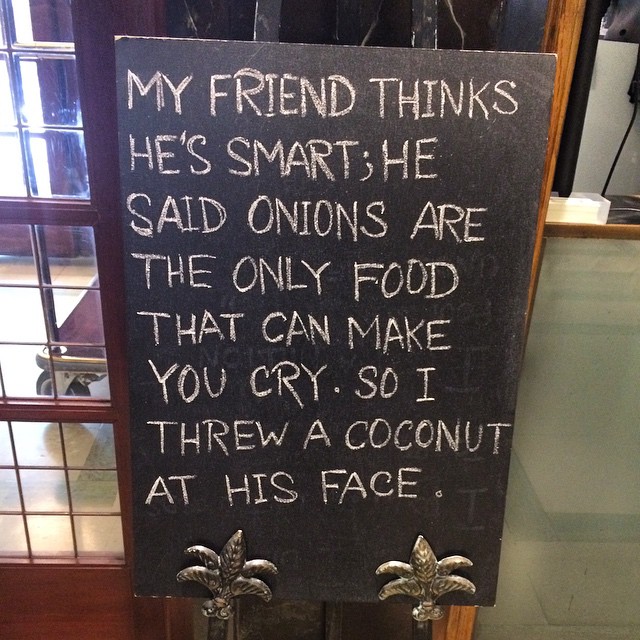 MY FRIEND THINKS
HE'S SMART; HE
SAID ONIONS ARE
THE ONLY FOOD
THAT CAN MAKE
YOU CRY. SO I
THREW A COCONUT
AT HIS FACE.